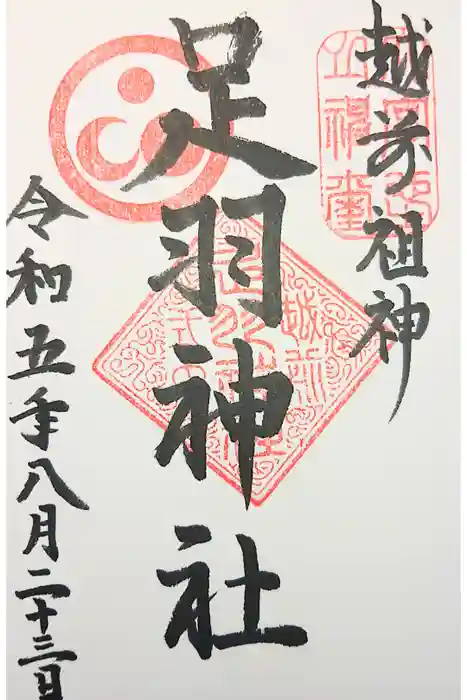 越前祖神
足羽神社
令和五年八月二十三日